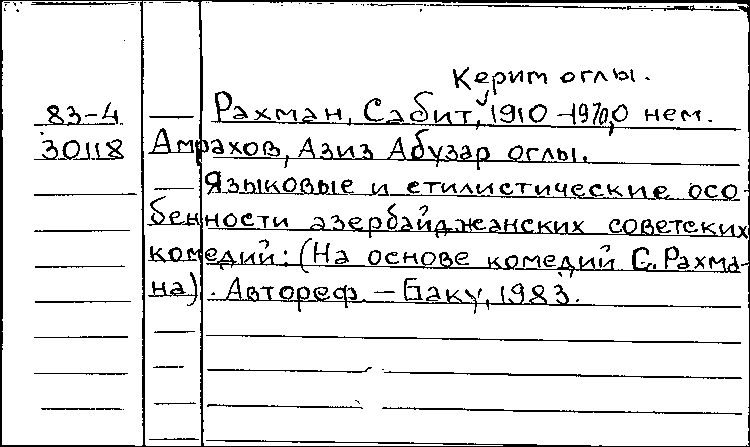 Керим оглы.
83-4 Рахман, Сабит, 1910-1970, О нем.
30118 Амрахов, Азиз Абузар оглы.
Языковые и стилистические осо-
бенности азербайджанских советских
комедий: (На основе комедий С. Рахма-
на). Автореф. - Баку, 1983.